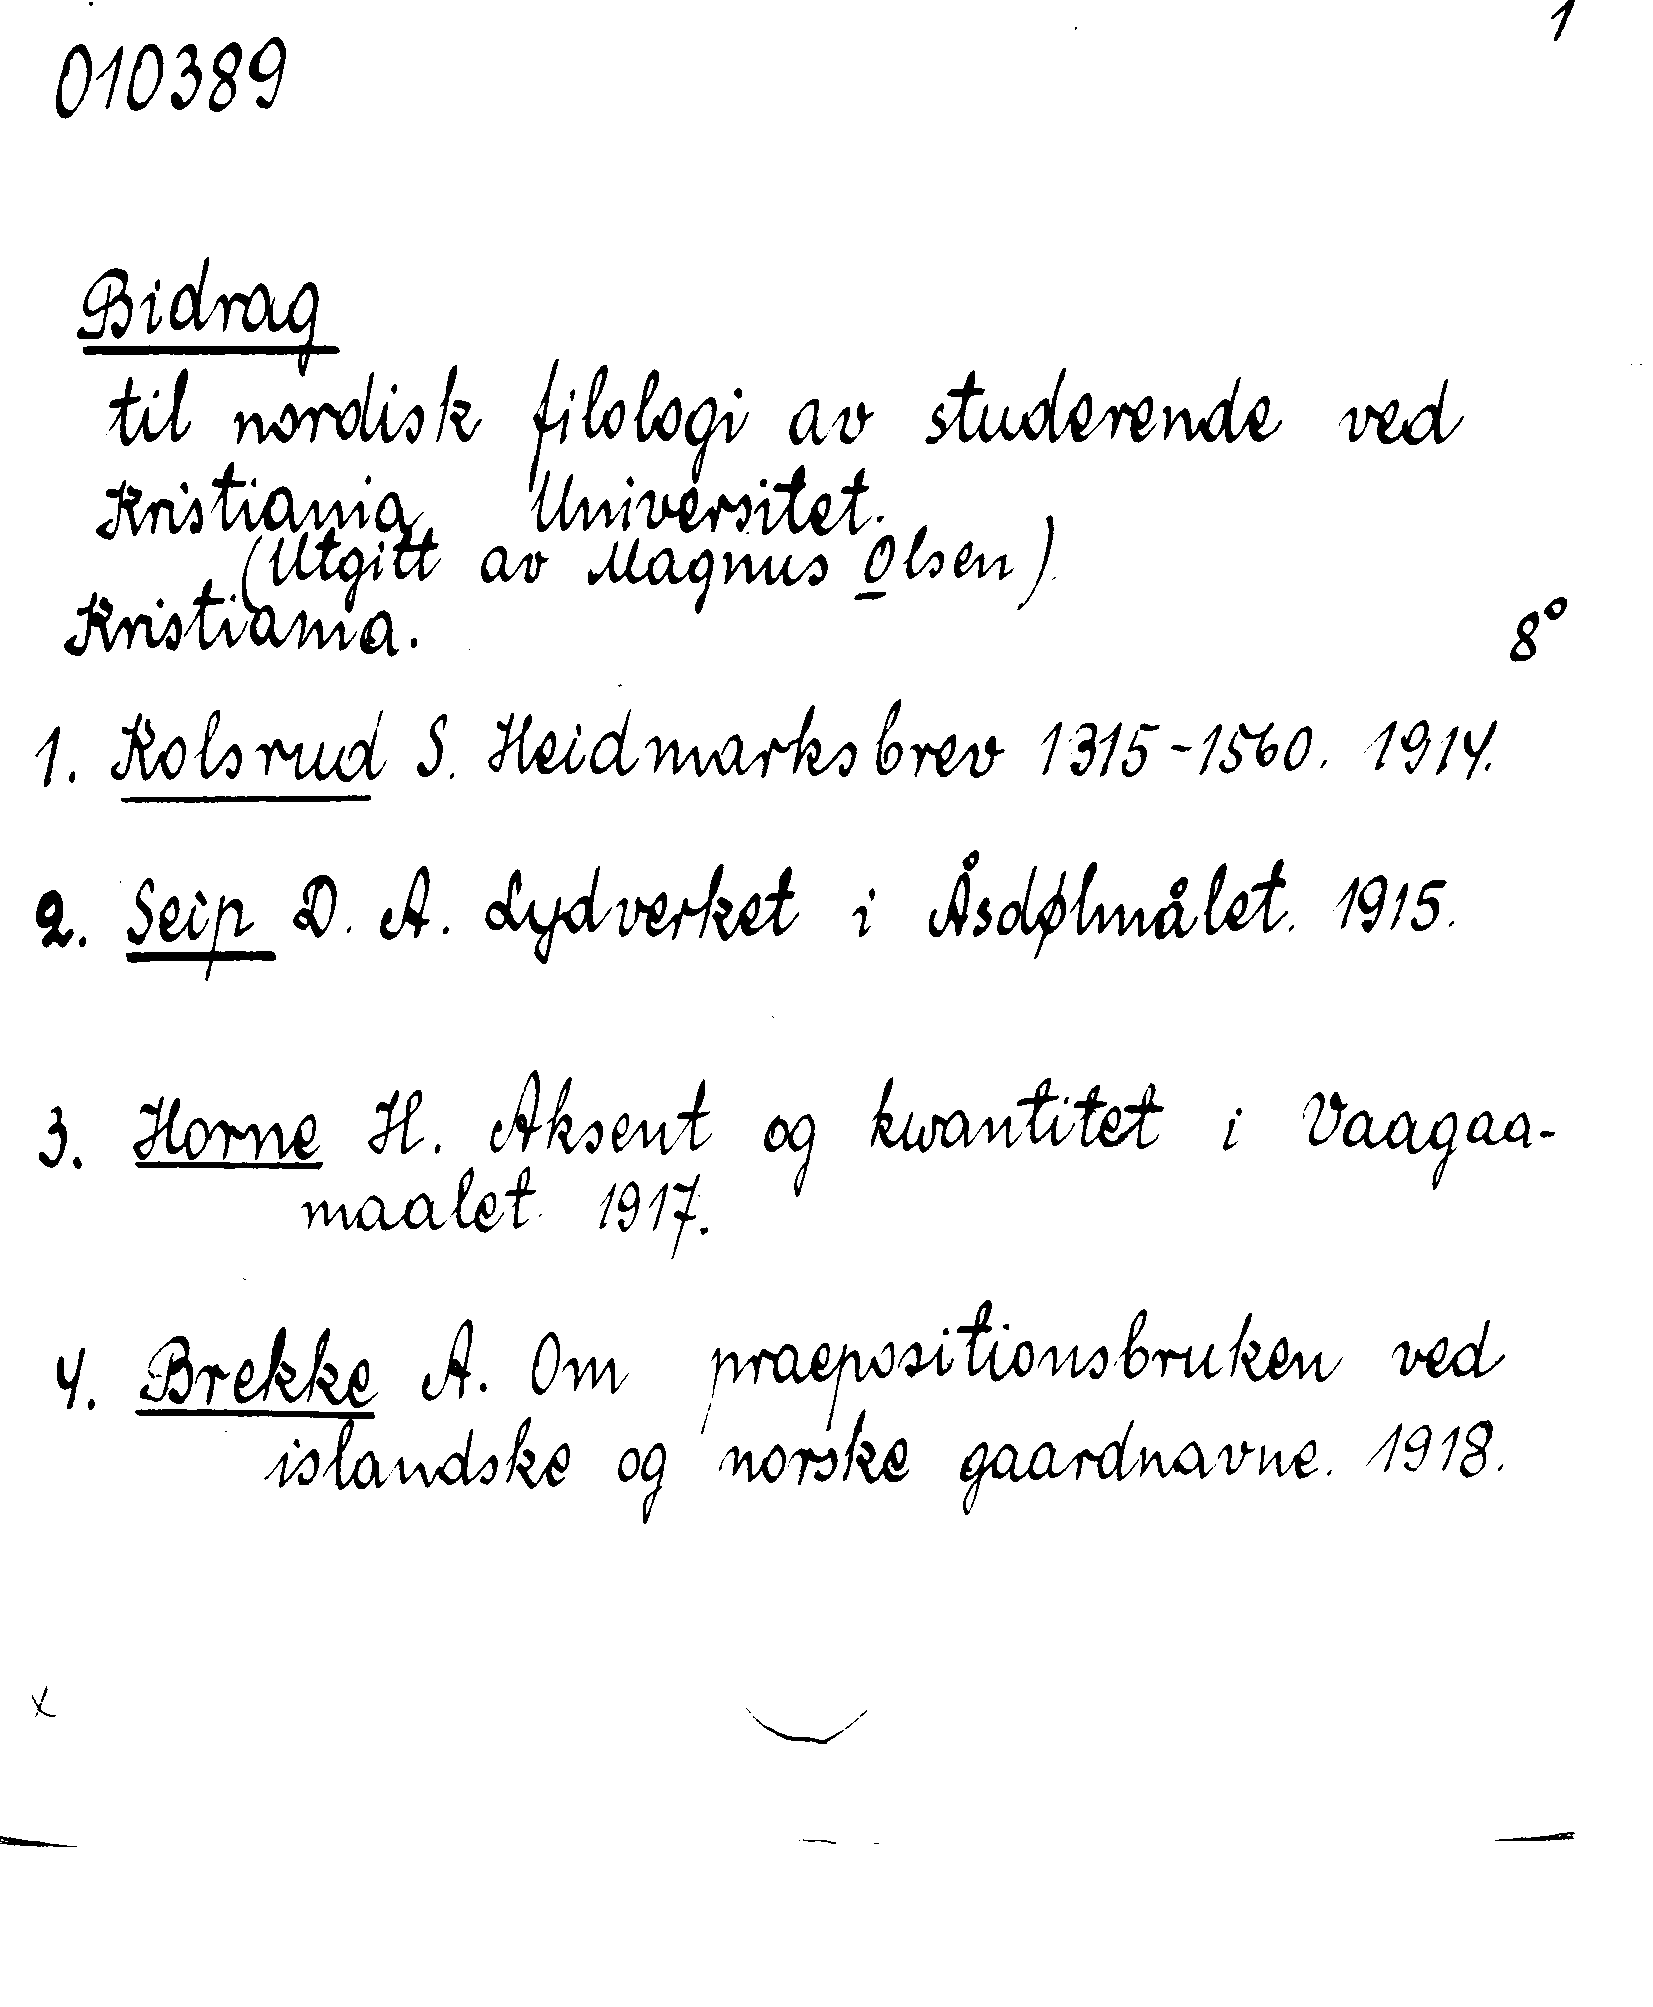 1
010389
Bidrag
til nordisk filologi av studerende ved
Kristiania Universitet.
(Utgitt av Magnus Olsen).
Kristiania. 8°
1. Kolsrud S. Heidmarksbrev 1315-1560. 1914.
2. Seip D. A. Lydverket i Åsdølmålet. 1915.
3. Horne H. Aksent og kwantitet i Vaagaa-
maalet. 1917.
4. Brekke A. Om praepositionsbruken ved
islandske og norske gaardnavne. 1918.
x